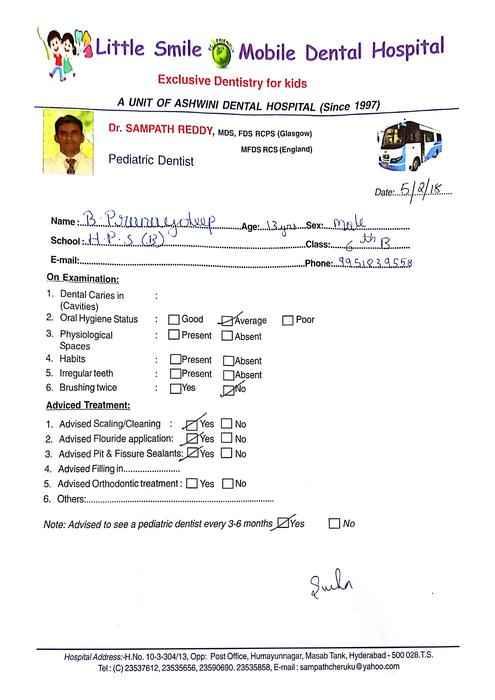 Little Smile Mobile Dental Hospital
Exclusive Dentistry for kids
A UNIT OF ASHWINI DENTAL HOSPITAL (Since 1997)
Dr. SAMPATH REDDY, MDS, FDS RCPS (Glasgow)
MFDS RCS (England)
Pediatric Dentist
Date: 5/2/18
Name: B. Pranaydeep Age: 13 yrs Sex: male
School: H.P.S (B) Class: 6th B
E-mail: Phone: 9951839558
On Examination:
1. Dental Caries in :
(Cavities)
2. Oral Hygiene Status : Good Average Poor
3. Physiological : Present Absent
Spaces
4. Habits : Present Absent
5. Irregular teeth : Present Absent
6. Brushing twice : Yes No
Adviced Treatment:
1. Advised Scaling/Cleaning : Yes No
2. Advised Flouride application: Yes No
3. Advised Pit & Fissure Sealants: Yes No
4. Advised Filling in....................
5. Advised Orthodontic treatment : Yes No
6. Others:..................................................
Note: Advised to see a pediatric dentist every 3-6 months Yes No
Hospital Address:-H.No. 10-3-304/13, Opp: Post Office, Humayunnagar, Masab Tank, Hyderabad - 500 028.T.S.
Tel.: (C) 23537612, 23535656, 23590690. 23535858, E-mail : sampathcheruku@yahoo.com